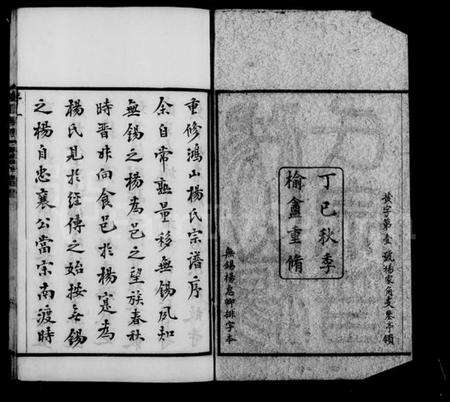 黃字第壹號楊家文支某子領
丁巳秋季
榆盦重脩
無錫楊志卿排字本
重修鴻山楊氏宗譜序
余自常熟量移無錫夙知
無錫之楊為邑之望族春秋
時晉羊向食邑於楊寔為
楊氏見於經傳之始按無錫
之楊自忠襄公當宗南渡時